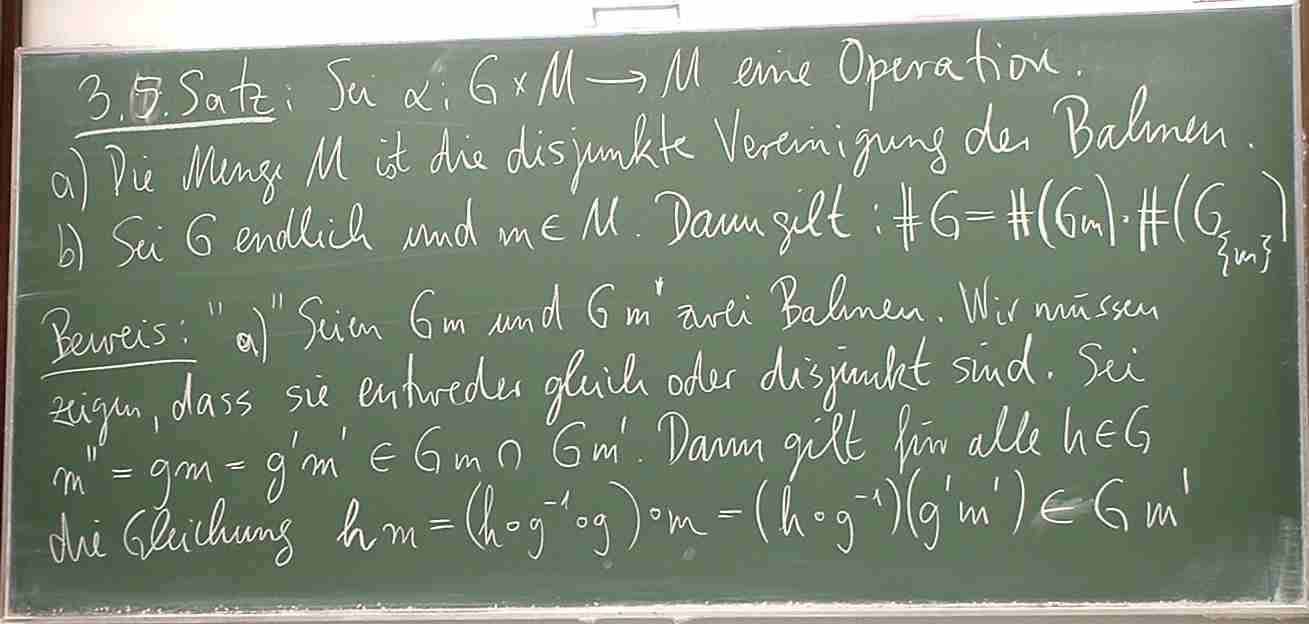 3.5. Satz: Sei α: G × M → M eine Operation.
a) Die Menge M ist die disjunkte Vereinigung der Bahnen.
b) Sei G endlich und m ∈ M. Dann gilt: #G = #(Gm)·#(G_{m})
Beweis: "a)" Seien Gm und Gm' zwei Bahnen. Wir müssen
zeigen, dass sie entweder gleich oder disjunkt sind. Sei
m'' = gm = g'm' ∈ Gm ∩ Gm'. Dann gilt für alle h ∈ G
die Gleichung hm = (h∘g⁻¹∘g)∘m = (h∘g⁻¹)(g'm') ∈ Gm'